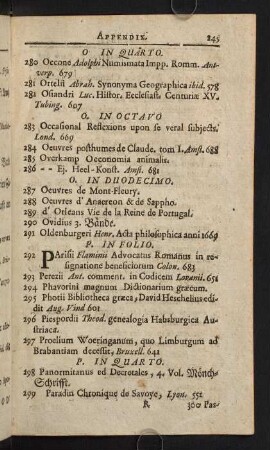 APPENDIX. 245
O IN QUARTO.
280 Occone Adolphi Numismata Impp. Romm. Ant-
verp. 679
281 Ortelii Abrah. Synonyma Geographica ibid. 578
282 Osiandri Luc. Histor. Ecclesiast. Centuriæ XV.
Tubing. 607
O. IN OCTAVO
283 Occasional Reflexions upon se veral subjects.
Lond. 669
284 Oeuvres posthumes de Claude, tom I. Amst. 688
285 Overkamp Oeconomia animalis.
286 - - Ej. Heel-Konst. Amst. 681
O. IN DUODECIMO.
287 Oeuvres de Mont-Fleury.
288 Oeuvres d' Anacreon & de Sappho.
289 d' Orleans Vie de la Reine de Portugal.
290 Ovidius 3. Bände.
291 Oldenburgeri Henr. Acta philosophica anni 1669
P. IN FOLIO.
292 PArisii Flaminii Advocatus Romanus in re-
signatione beneficiorum Colon. 683
293 Perezii Ant. comment. in Codicem Lovanii. 651
294 Phavorini magnum Dictionarium græcum.
295 Photii Bibliotheca græca, David Heschelius edi-
dit Aug. Vind 601
296 Piespordii Theod. genealogia Habsburgica Au-
striaca.
297 Proelium Woeringanum, quo Limburgum ad
Brabantiam decessit, Bruxell. 641
P. IN QUARTO.
298 Panormitanus ed Decretales, 4. Vol. Mönch-
Schrifft.
299 Paradin Chronique de Savoye, Lyon. 552
R 300 Pas-